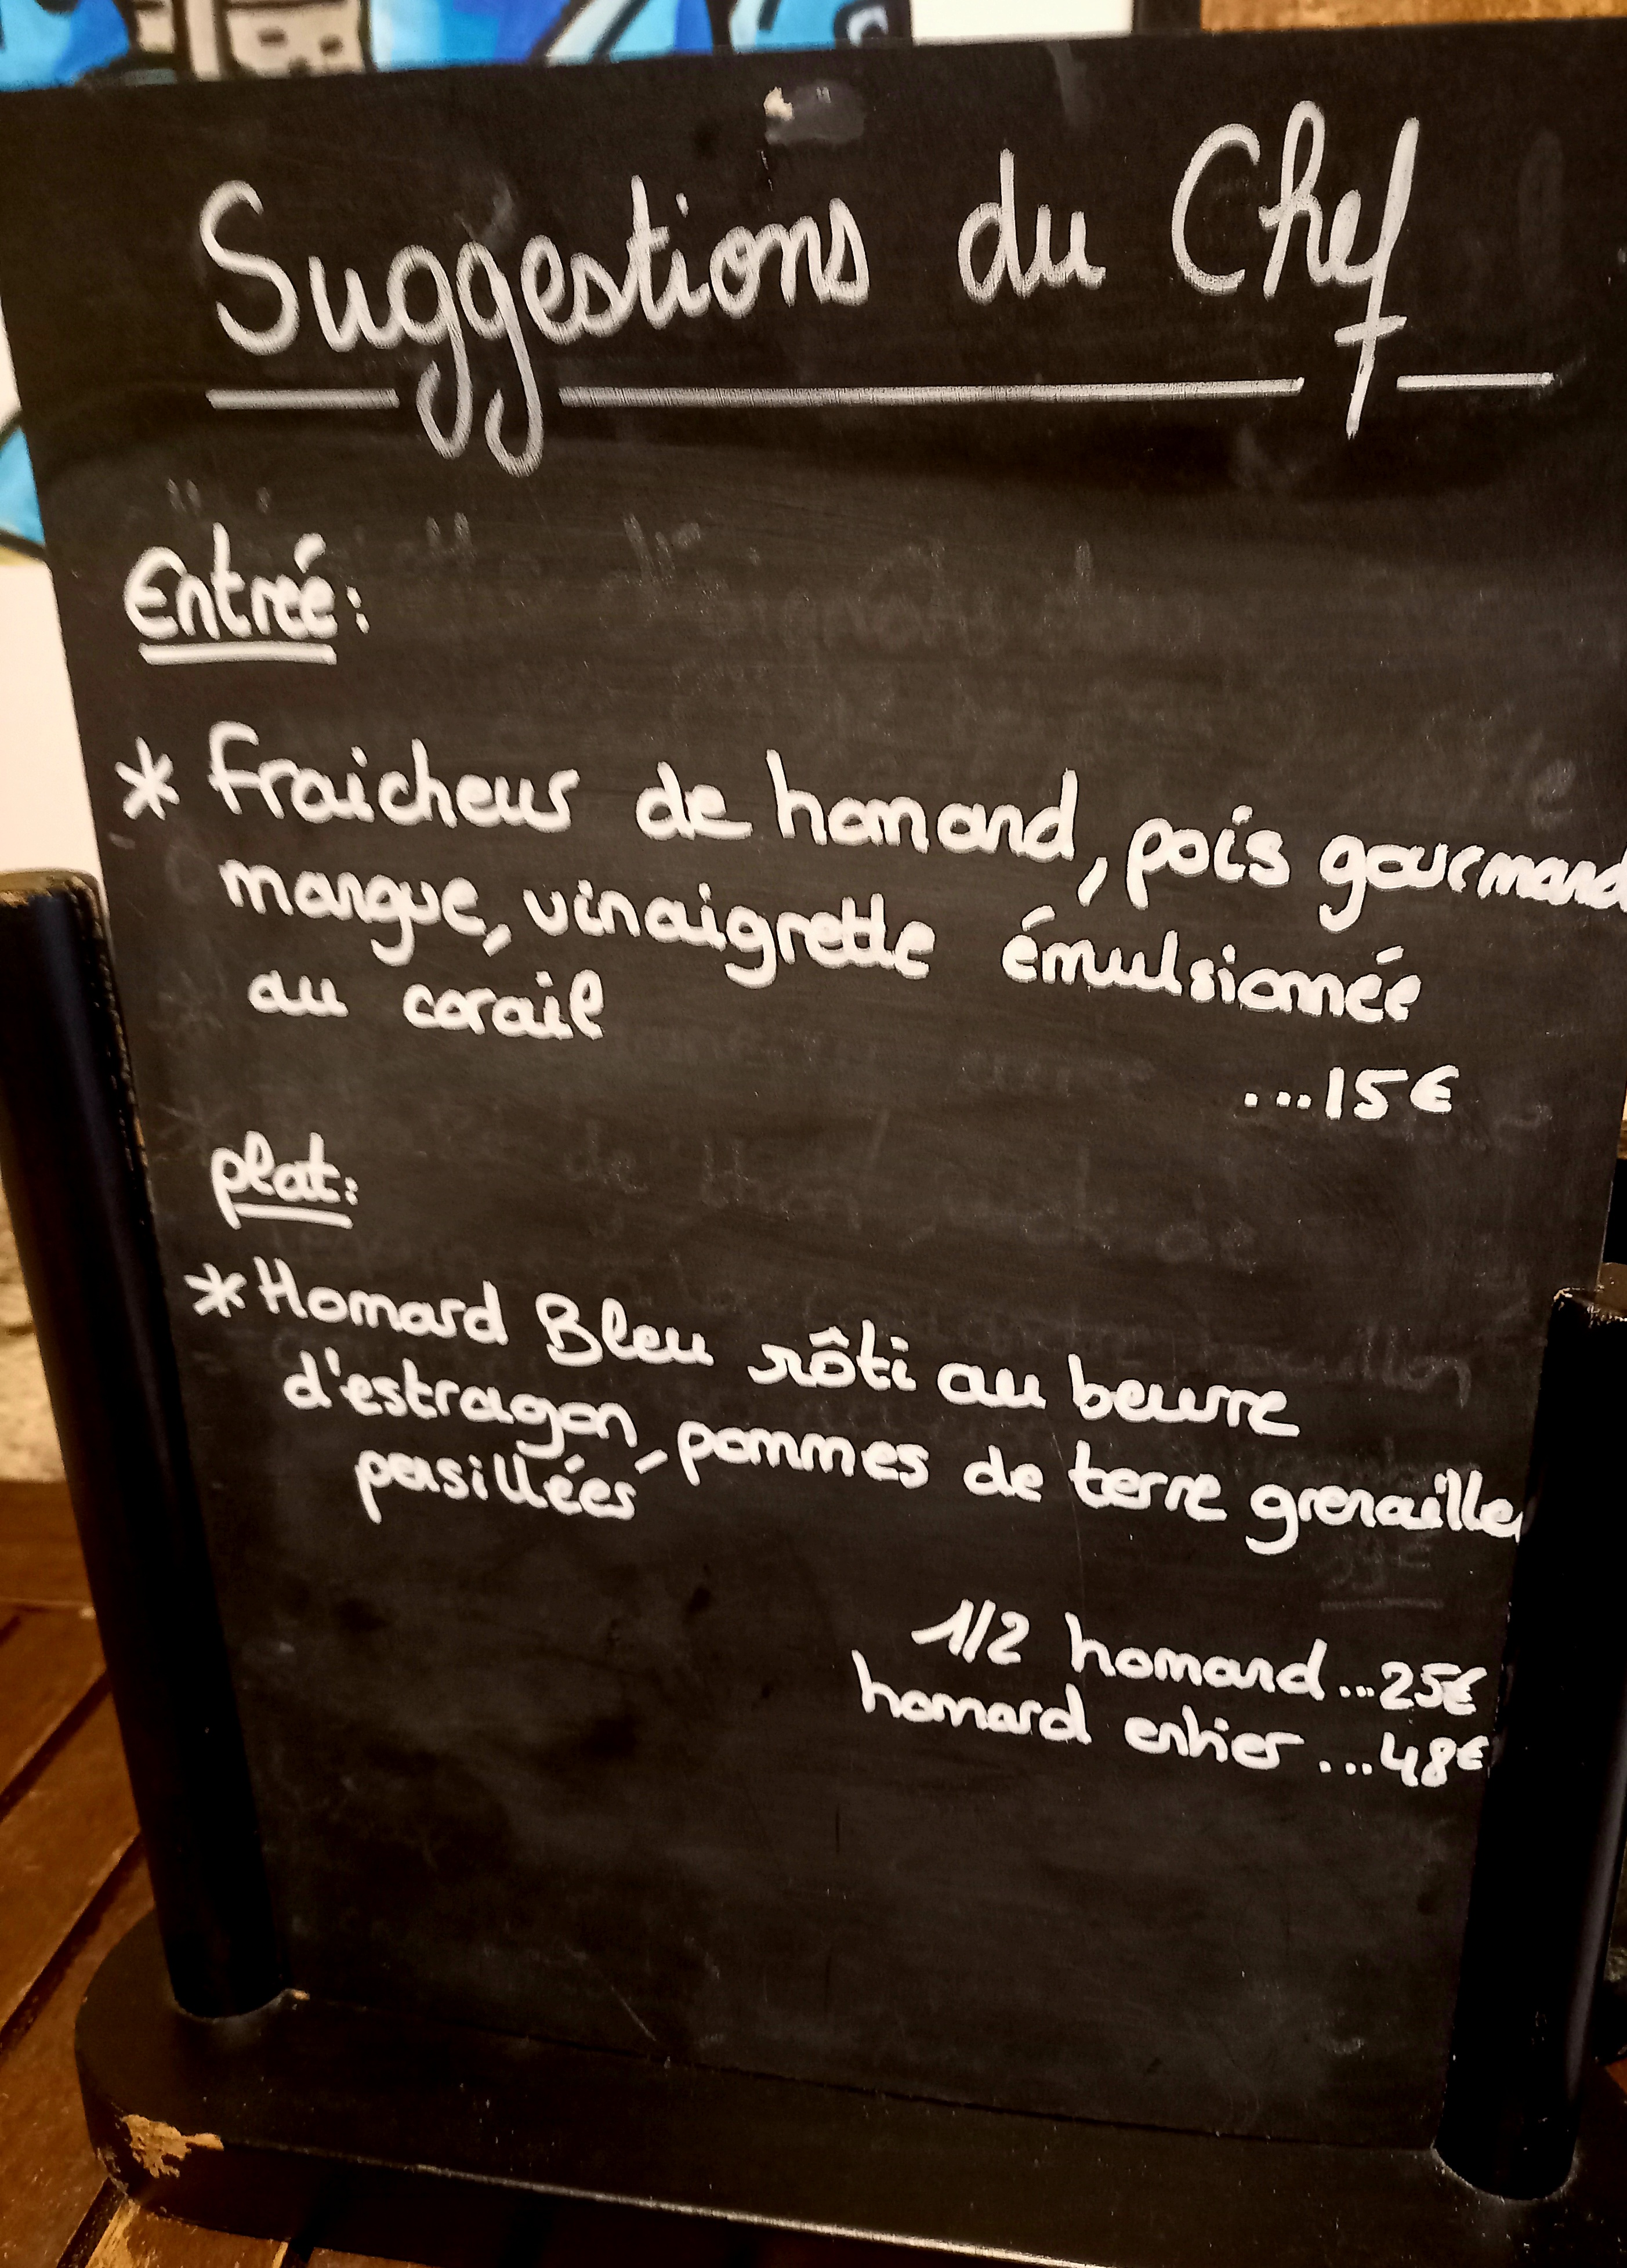 Suggestions du Chef
Entrée:
* Fraicheur de homard, pois gourmand
mangue, vinaigrette émulsionnée
au corail
...15€
plat:
* Homard Bleu rôti au beurre
d'estragon, pommes de terre grenailles
persillées
1/2 homard...25€
homard entier...48€